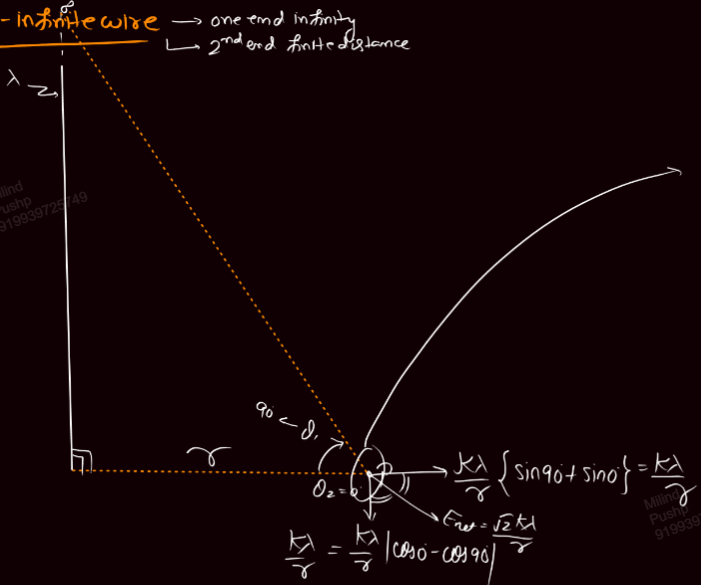 ∞
-infinite wire → one end infinity
↳ 2nd end finite distance
λ
Milind
Pushp
919939725749
90° ← θ₁
r
θ₂=0°
kλ/r {sin90°+sin0°} = kλ/r
Enet = √2kλ/r
kλ/r = kλ/r |cos0°-cos90°|
Milind
Pushp
91993